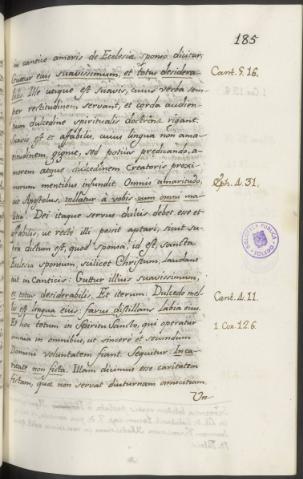 185
in cantico amoris de Ecclesia sponso dicitur:
Guttur eius suavissimum, et totus desidera-
bilis. Ille utique est suavis, cuius verba sem-
per rectitudinem servant, et corda audien-
tium dulcedine spiritualis doctrinæ rigant.
Suavis est et affabilis, cuius lingua non ama-
ritudinem gignit, sed potius prædicando, a-
morem atque dulcedinem Creatoris proxi-
morum mentibus infundit. Omnis amaritudo,
ait Apostolus, tollatur à vobis cum omni ma-
litia. Dei itaque servus dulcis debet esse et
affabilis, ut recte illi possit aptari, sunt su-
pra dictum est, quod sponsa, id est, sancta
Ecclesia sponsum scilicet Christum, laudans
ait in Canticis: Guttur illius suavissimum,
et totus desiderabilis. Et iterum: Dulcedo mel-
lis est lingua eius: favus distillans labia eius.
Et hoc totum in Spiritu Sancto, qui operatur
omnia in omnibus, ut sincere et secundum
Domini voluntatem fiant. Sequitur: In ca-
ritate non ficta. Illam dicimus esse caritatem
fictam, quæ non servat diuturnam amicitiam.
Un
Cant. 5. 16.
Eph. 4. 31.
Cant. 4. 11.
1 Cor. 12. 6.